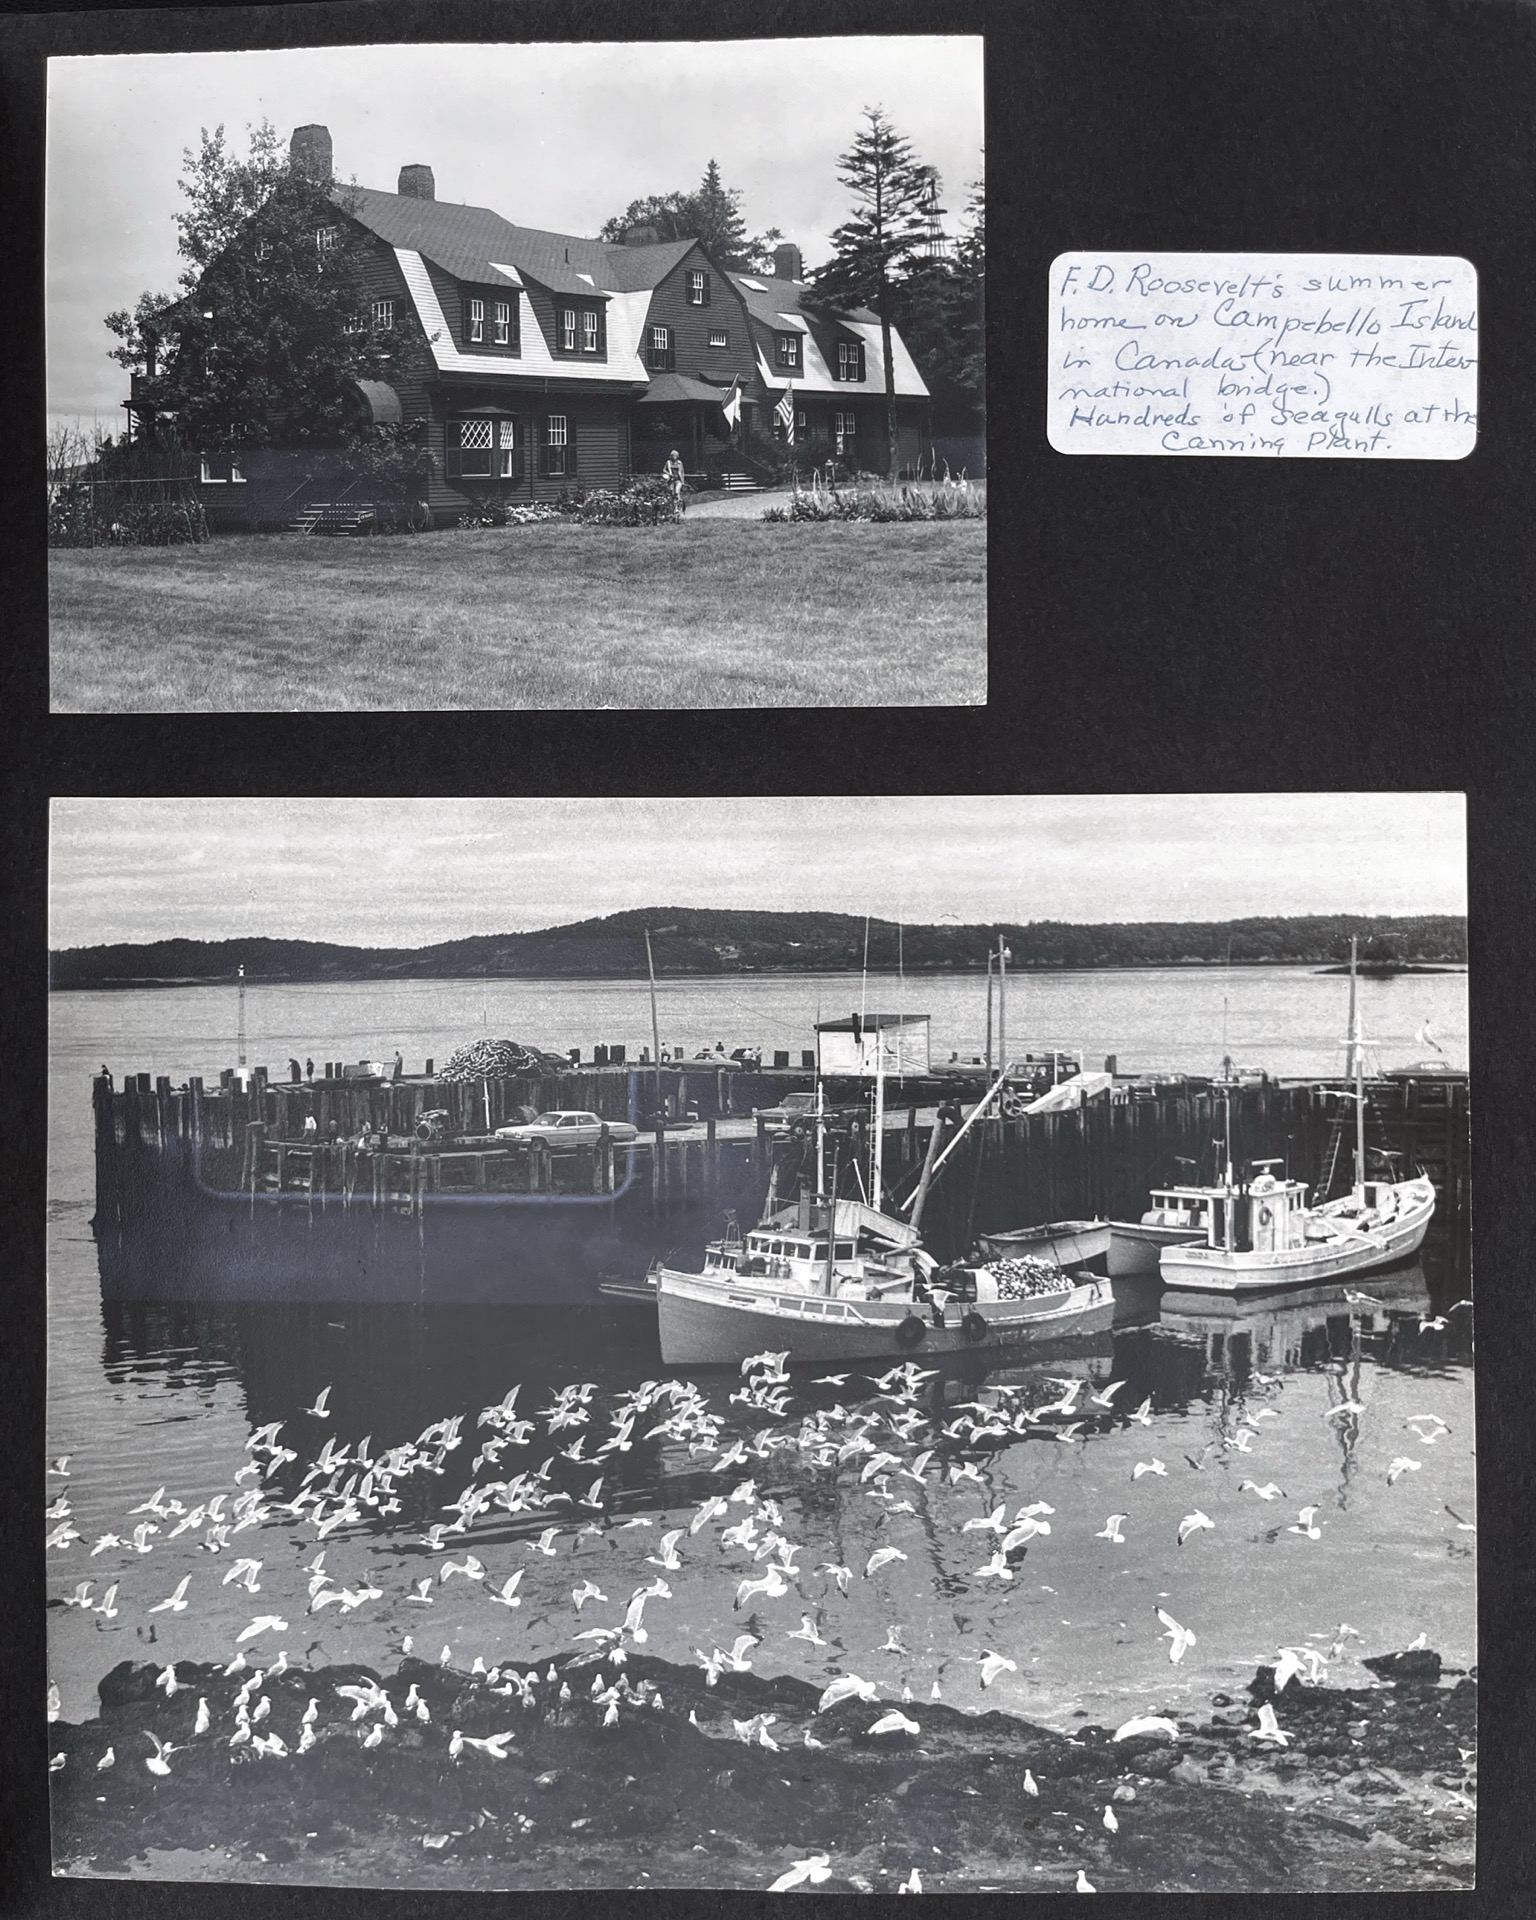 F. D. Roosevelt's summer
home on Campebello Island
in Canada (near the Inter-
national bridge.)
Hundreds of seagulls at the
Canning Plant.